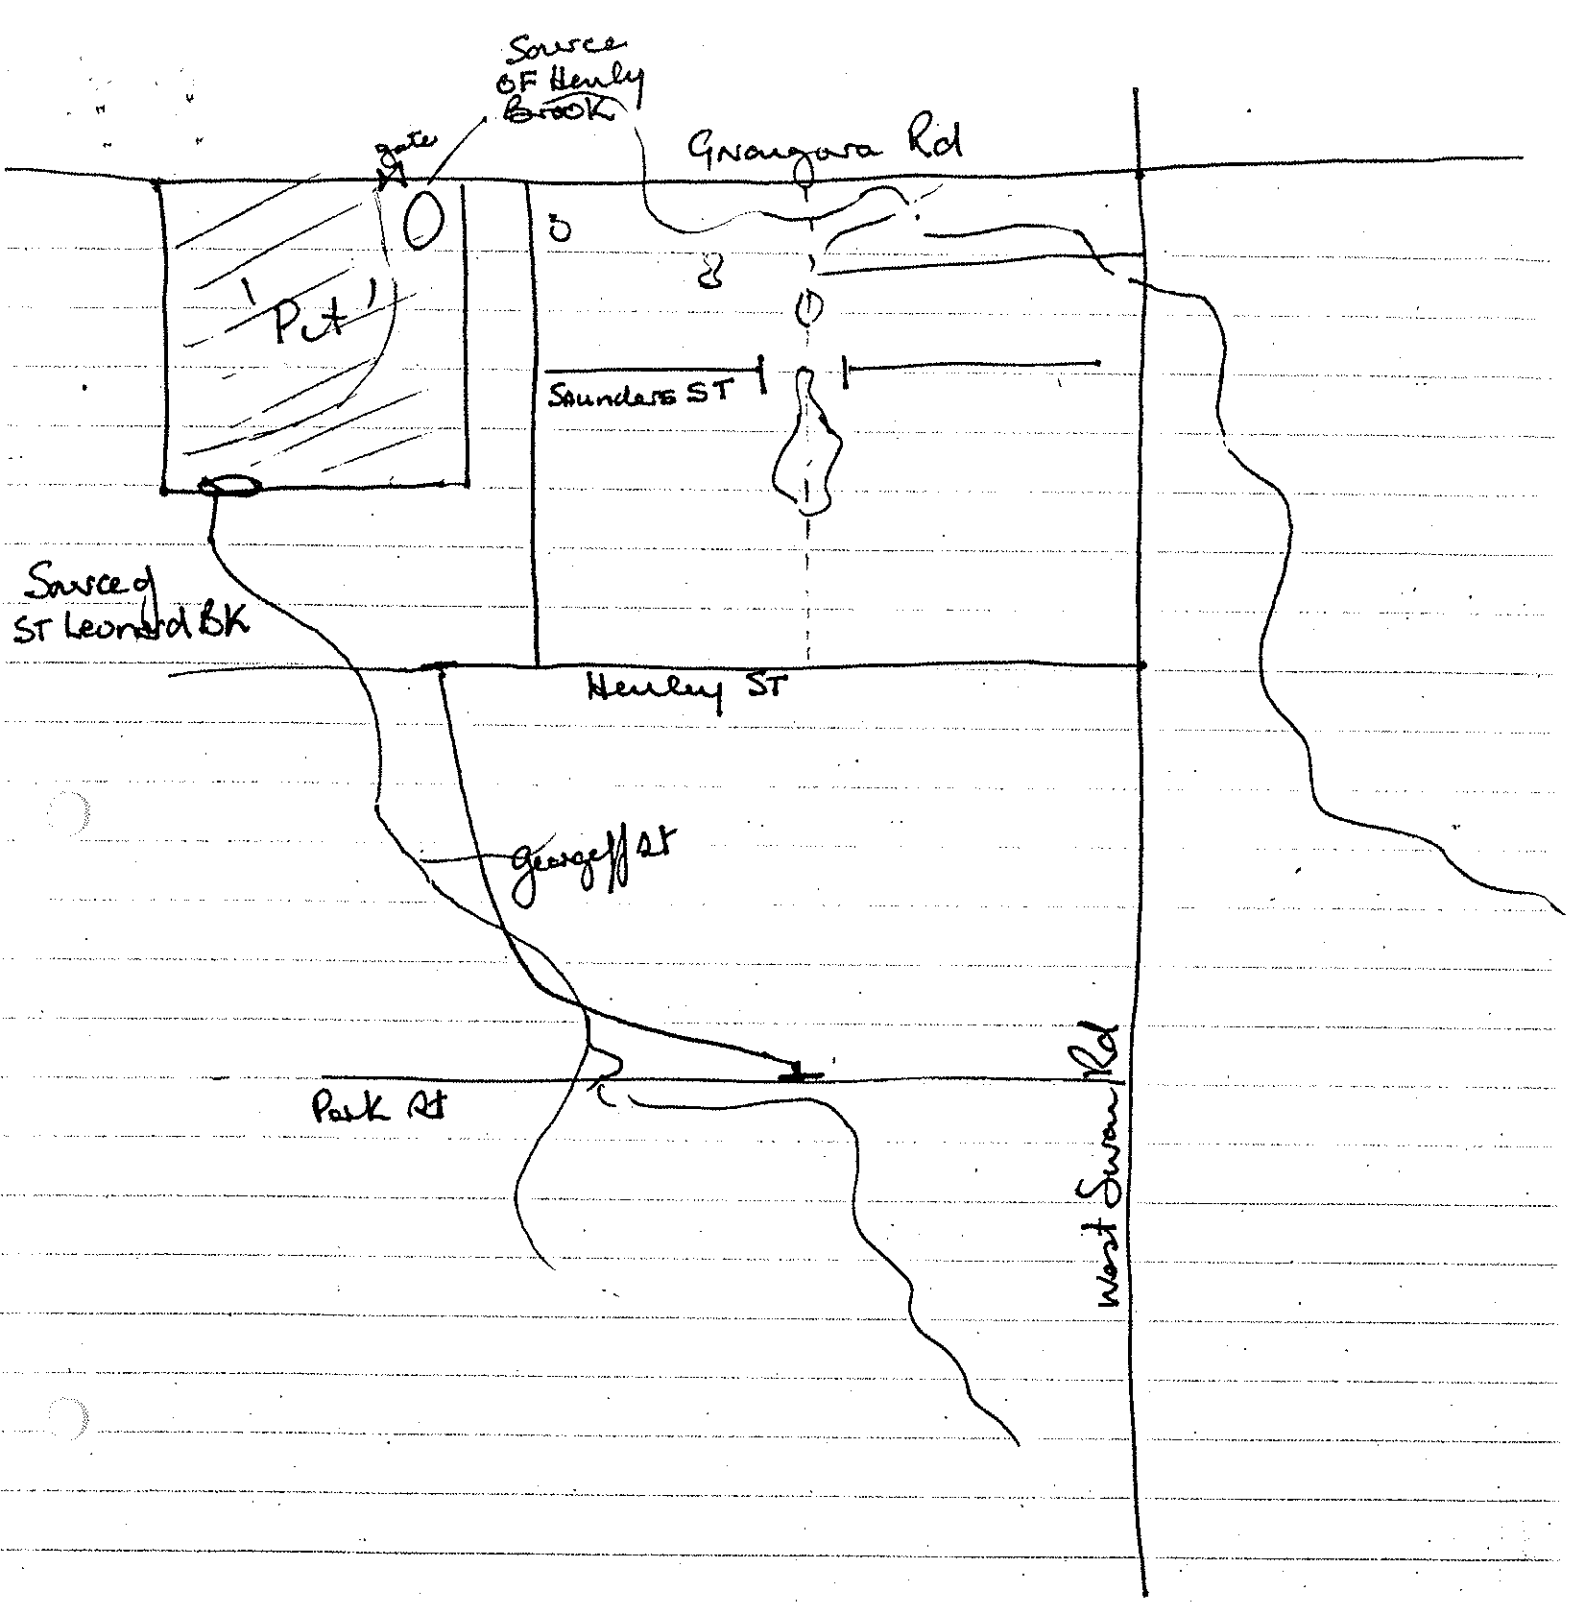 Source
OF Henly
Brook
gate
Gnangara Rd
'Put'
Saunders ST
Source of
ST Leonard BK
Henley ST
Georgeff St
Park St
West Swan Rd